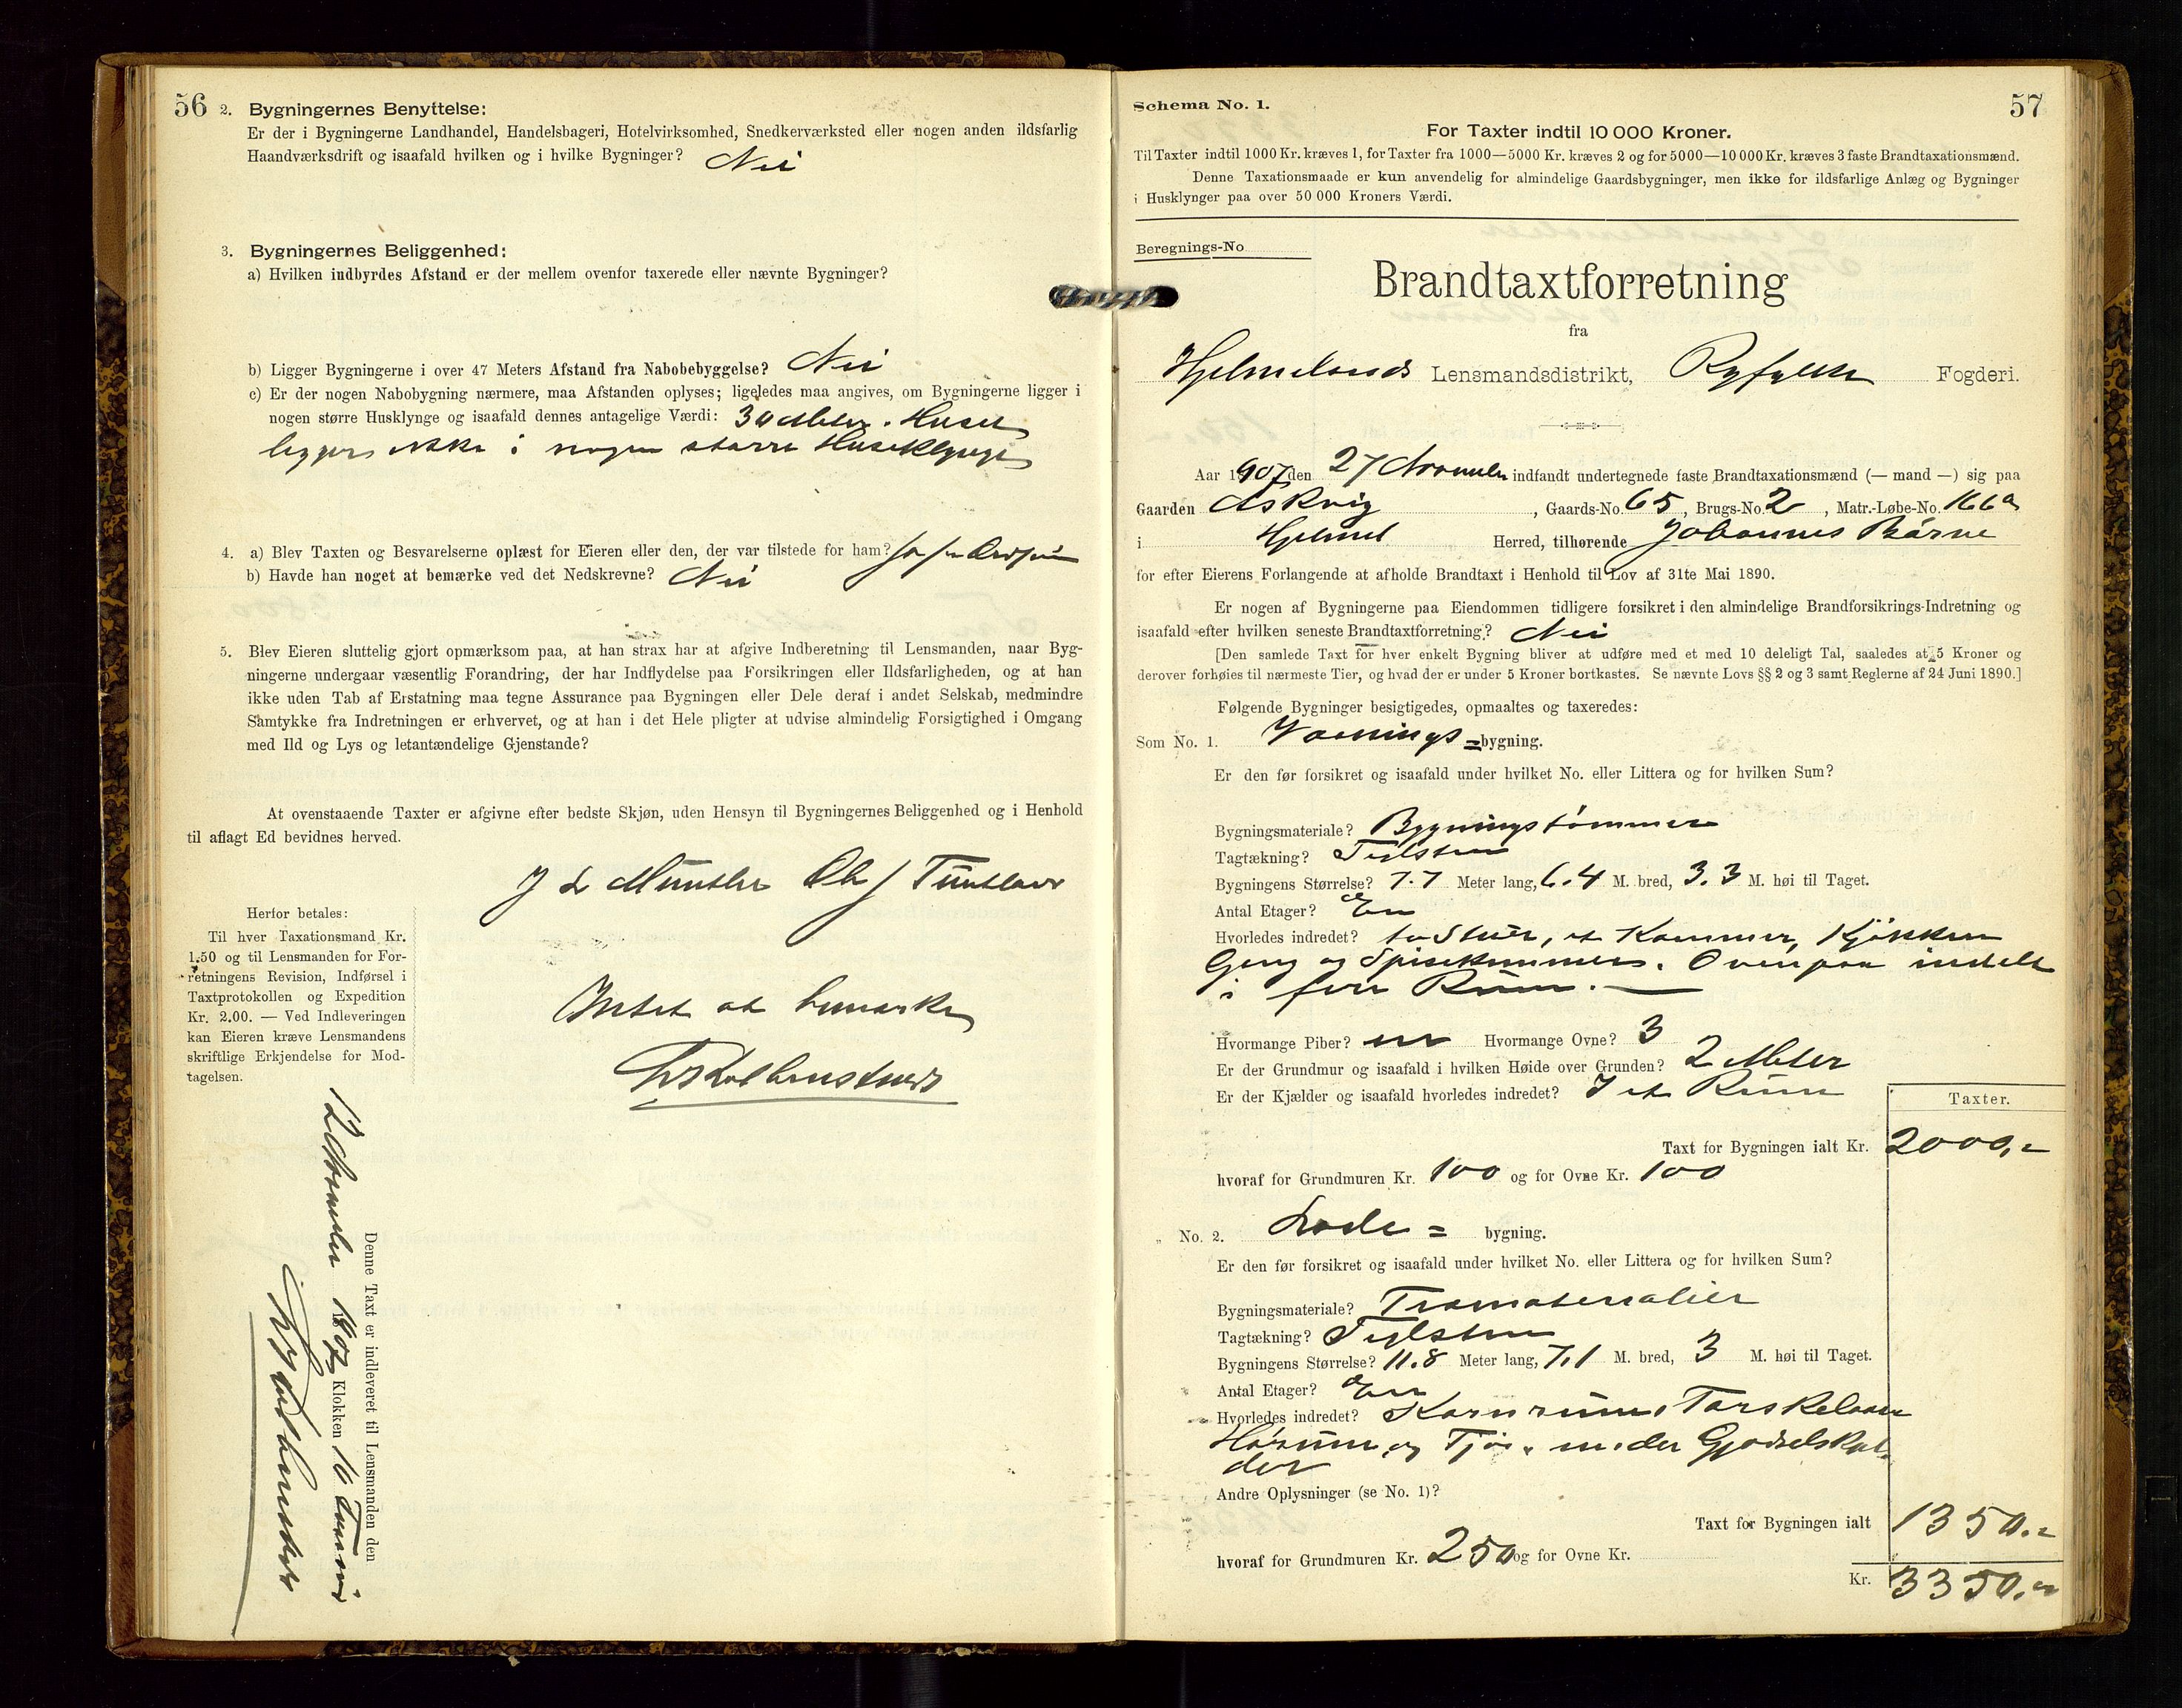 56 2. Bygningernes Benyttelse:
Er der i Bygningerne Landhandel, Handelsbageri, Hotelvirksomhed, Snedkerværksted eller nogen anden ildsfarlig
Haandværksdrift og isaafald hvilken og i hvilke Bygninger? Nei
3. Bygningernes Beliggenhed:
a) Hvilken indbyrdes Afstand er der mellem ovenfor taxerede eller nævnte Bygninger?
b) Ligger Bygningerne i over 47 Meters Afstand fra Nabobebyggelse? Nei
c) Er der nogen Nabobygning nærmere, maa Afstanden oplyses; ligeledes maa angives, om Bygningerne ligger i
nogen større Husklynge og isaafald dennes antagelige Værdi: 30 Meter. Huset
ligger ikke i nogen større Huseklynge
4. a) Blev Taxten og Besvarelserne oplæst for Eieren eller den, der var tilstede for ham? Ja
b) Havde han noget at bemærke ved det Nedskrevne? Nei
5. Blev Eieren sluttelig gjort opmærksom paa, at han strax har at afgive Indberetning til Lensmanden, naar Byg-
ningerne undergaar væsentlig Forandring, der har Indflydelse paa Forsikringen eller Ildsfarligheden, og at han
ikke uden Tab af Erstatning maa tegne Assurance paa Bygningen eller Dele deraf i andet Selskab, medmindre
Samtykke fra Indretningen er erhvervet, og at han i det Hele pligter at udvise almindelig Forsigtighed i Omgang
med Ild og Lys og letantændelige Gjenstande?
At ovenstaaende Taxter er afgivne efter bedste Skjøn, uden Hensyn til Bygningernes Beliggenhed og i Henhold
til aflagt Ed bevidnes herved.
Intet at bemærke
Herfor betales:
Til hver Taxationsmand Kr.
1.50 og til Lensmanden for For-
retningens Revision, Indførsel i
Taxtprotokollen og Expedition
Kr. 2.00. — Ved Indleveringen
kan Eieren kræve Lensmandens
skriftlige Erkjendelse for Mod-
tagelsen.
Denne Taxt er indleveret til Lensmanden den
1907 Klokken 10
Schema No. 1. 57
For Taxter indtil 10 000 Kroner.
Til Taxter indtil 1000 Kr. kræves 1, for Taxter fra 1000—5000 Kr. kræves 2 og for 5000—10 000 Kr. kræves 3 faste Brandtaxationsmænd.
Denne Taxationsmaade er kun anvendelig for almindelige Gaardsbygninger, men ikke for ildsfarlige Anlæg og Bygninger
i Husklynger paa over 50 000 Kroners Værdi.
Beregnings-No
Brandtaxtforretning
fra
Hjelmelands Lensmandsdistrikt, Ryfylke Fogderi.
Aar 1907 den 27 November indfandt undertegnede faste Brandtaxationsmænd (— mand —) sig paa
Gaarden Askvig, Gaards-No. 65, Brugs-No. 2, Matr.-Løbe-No. 166a
i Hjelmel Herred, tilhørende Johannes Børne
for efter Eierens Forlangende at afholde Brandtaxt i Henhold til Lov af 31te Mai 1890.
Er nogen af Bygningerne paa Eiendommen tidligere forsikret i den almindelige Brandforsikrings-Indretning og
isaafald efter hvilken seneste Brandtaxtforretning? Nei
[Den samlede Taxt for hver enkelt Bygning bliver at udføre med et med 10 deleligt Tal, saaledes at 5 Kroner og
derover forhøies til nærmeste Tier, og hvad der er under 5 Kroner bortkastes. Se nævnte Lovs §§ 2 og 3 samt Reglerne af 24 Juni 1890.]
Følgende Bygninger besigtigedes, opmaaltes og taxeredes:
Som No. 1. Vaanings=bygning.
Er den før forsikret og isaafald under hvilket No. eller Littera og for hvilken Sum?
Bygningsmateriale? Bygningstømmer
Tagtækning? Teglsten
Bygningens Størrelse? 7.7 Meter lang, 6.4 M. bred, 3.3 M. høi til Taget.
Antal Etager? En
Hvorledes indredet? to Stuer, et Kammer, Kjøkken
Gang og Spisekammer. Ovenpaa indelt
i fire Rum.
Hvormange Piber? en Hvormange Ovne? 3
Er der Grundmur og isaafald i hvilken Høide over Grunden? 2 Meter
Er der Kjælder og isaafald hvorledes indredet? I et Rum
Taxter.
Taxt for Bygningen ialt Kr. 2000,=
hvoraf for Grundmuren Kr. 100 og for Ovne Kr. 100
„ No. 2. Lade= bygning.
Er den før forsikret og isaafald under hvilket No. eller Littera og for hvilken Sum?
Bygningsmateriale? Træmaterialier
Tagtækning? Teglsten
Bygningens Størrelse? 11.8 Meter lang, 7,1 M. bred, 3 M. høi til Taget.
Antal Etager? En
Hvorledes indredet? Kornrum, Tærskelaave
Hørum og Fjøs. under Gjødselskjæl-
der
Andre Oplysninger (se No. 1)?
Taxt for Bygningen ialt 1350.=
hvoraf for Grundmuren Kr. 250 og for Ovne Kr.
Kr. 3350.=